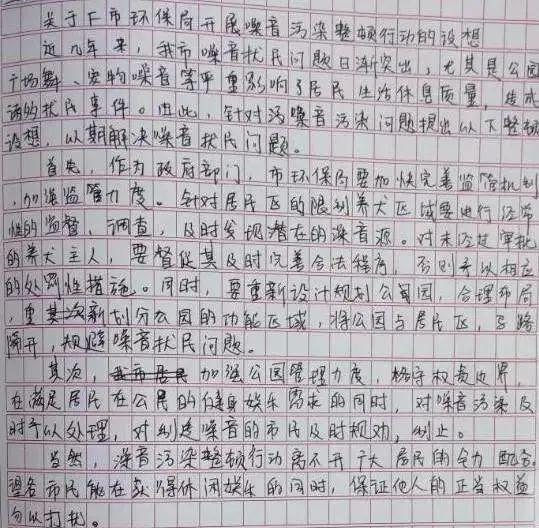 关于F市环保局开展噪音污染整顿行动的设想
近几年来，我市噪音扰民问题日渐突出，尤其是公园
广场舞、宠物噪音等严重影响了居民生活休息质量，造成
诸多扰民事件。由此，针对该噪音污染问题提出以下整顿
设想，以期解决噪音扰民问题。
首先，作为政府部门，市环保局要加快完善监管机制
，加强监管力度。针对居民区的限制养犬区域要进行经常
性的监督、调查，及时发现潜在的噪音源。对未经过审批
的养犬主人，要督促其及时完善合法程序，否则予以相应
的处罚性措施。同时，要重新设计规划公园，合理布局
，重新划分公园的功能区域，将公园与居民区、马路
隔开，规避噪音扰民问题。
其次，加强公园管理力度，恪守权责边界，
在满足居民在公民的健身娱乐需求的同时，对噪音污染及
时予以处理，对制造噪音的市民及时规劝，制止。
当然，噪音污染整顿行动离不开广大居民的全力配合。
望各市民能在获得休闲娱乐的同时，保证他人的正当权益
勿以打扰。